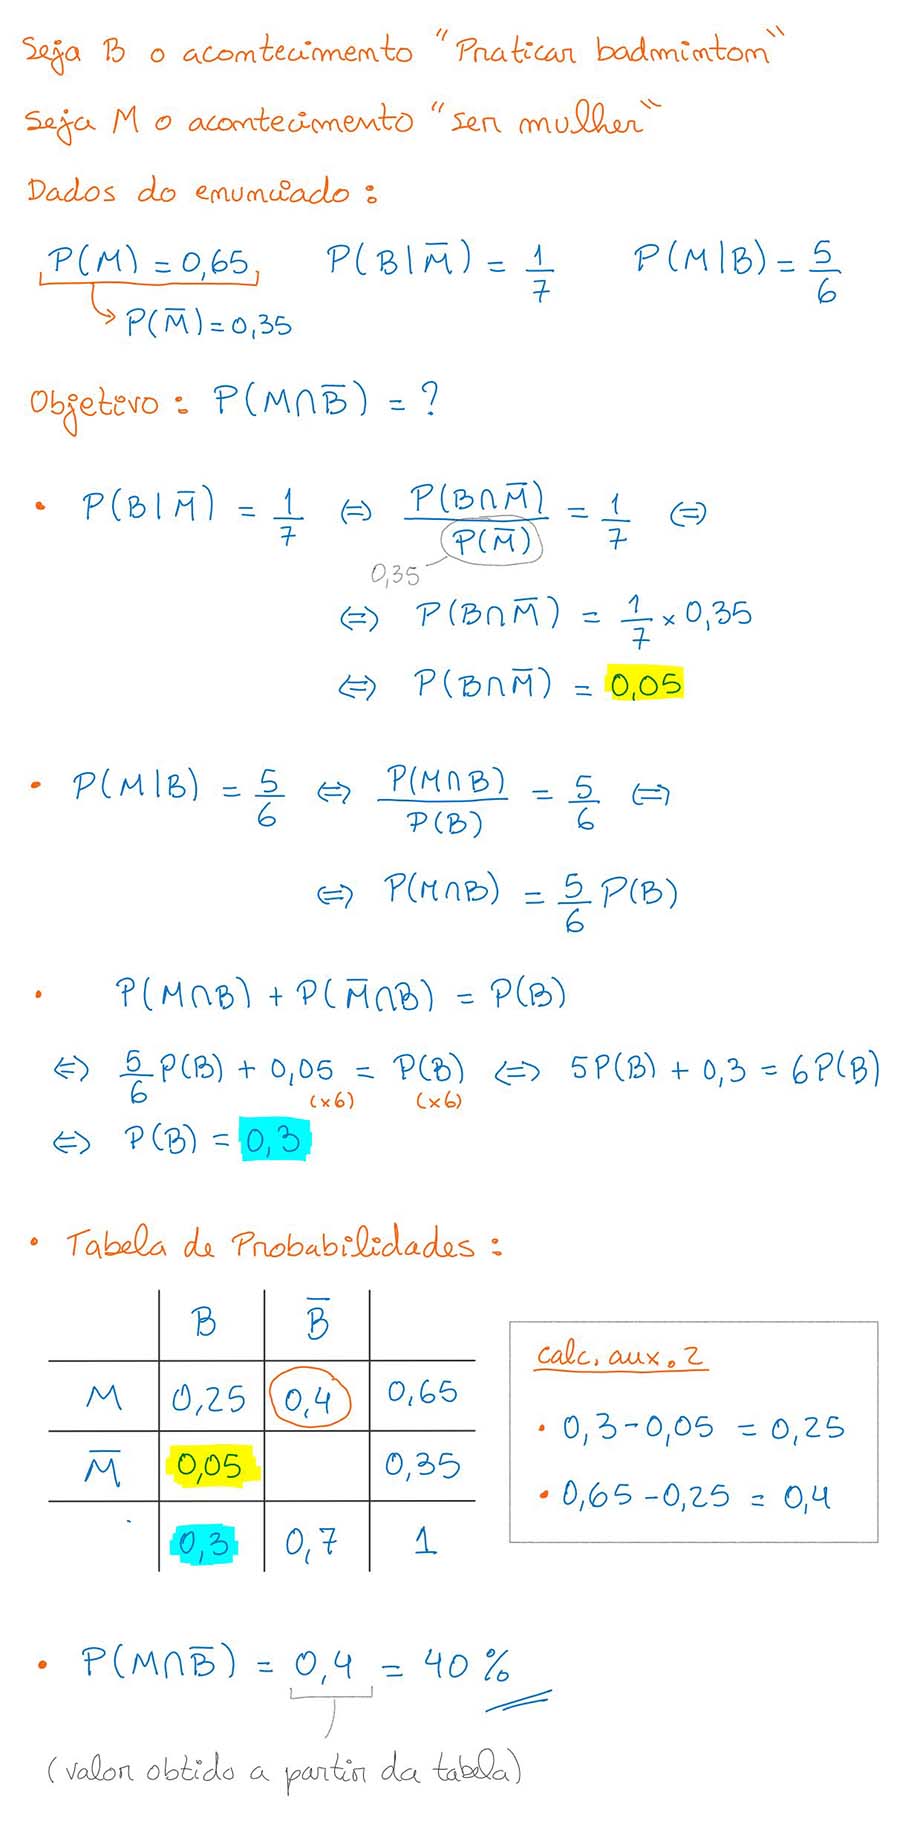 Seja B o acontecimento "Praticar badminton"
Seja M o acontecimento "ser mulher"
Dados do enunciado:
P(M) = 0,65   P(B|M̅) = 1/7   P(M|B) = 5/6
P(M̅) = 0,35
Objetivo: P(M∩B̅) = ?
• P(B|M̅) = 1/7 ⇔ P(B∩M̅)/P(M̅) = 1/7 ⇔
0,35
⇔ P(B∩M̅) = 1/7 × 0,35
⇔ P(B∩M̅) = 0,05
• P(M|B) = 5/6 ⇔ P(M∩B)/P(B) = 5/6 ⇔
⇔ P(M∩B) = 5/6 P(B)
• P(M∩B) + P(M̅∩B) = P(B)
⇔ 5/6 P(B) + 0,05 = P(B) ⇔ 5P(B) + 0,3 = 6P(B)
(×6) (×6)
⇔ P(B) = 0,3
• Tabela de Probabilidades:
B B̅
M 0,25 0,4 0,65
M̅ 0,05 0,35
0,3 0,7 1
calc. aux. 2
• 0,3-0,05 = 0,25
• 0,65-0,25 = 0,4
• P(M∩B̅) = 0,4 = 40%
(valor obtido a partir da tabela)